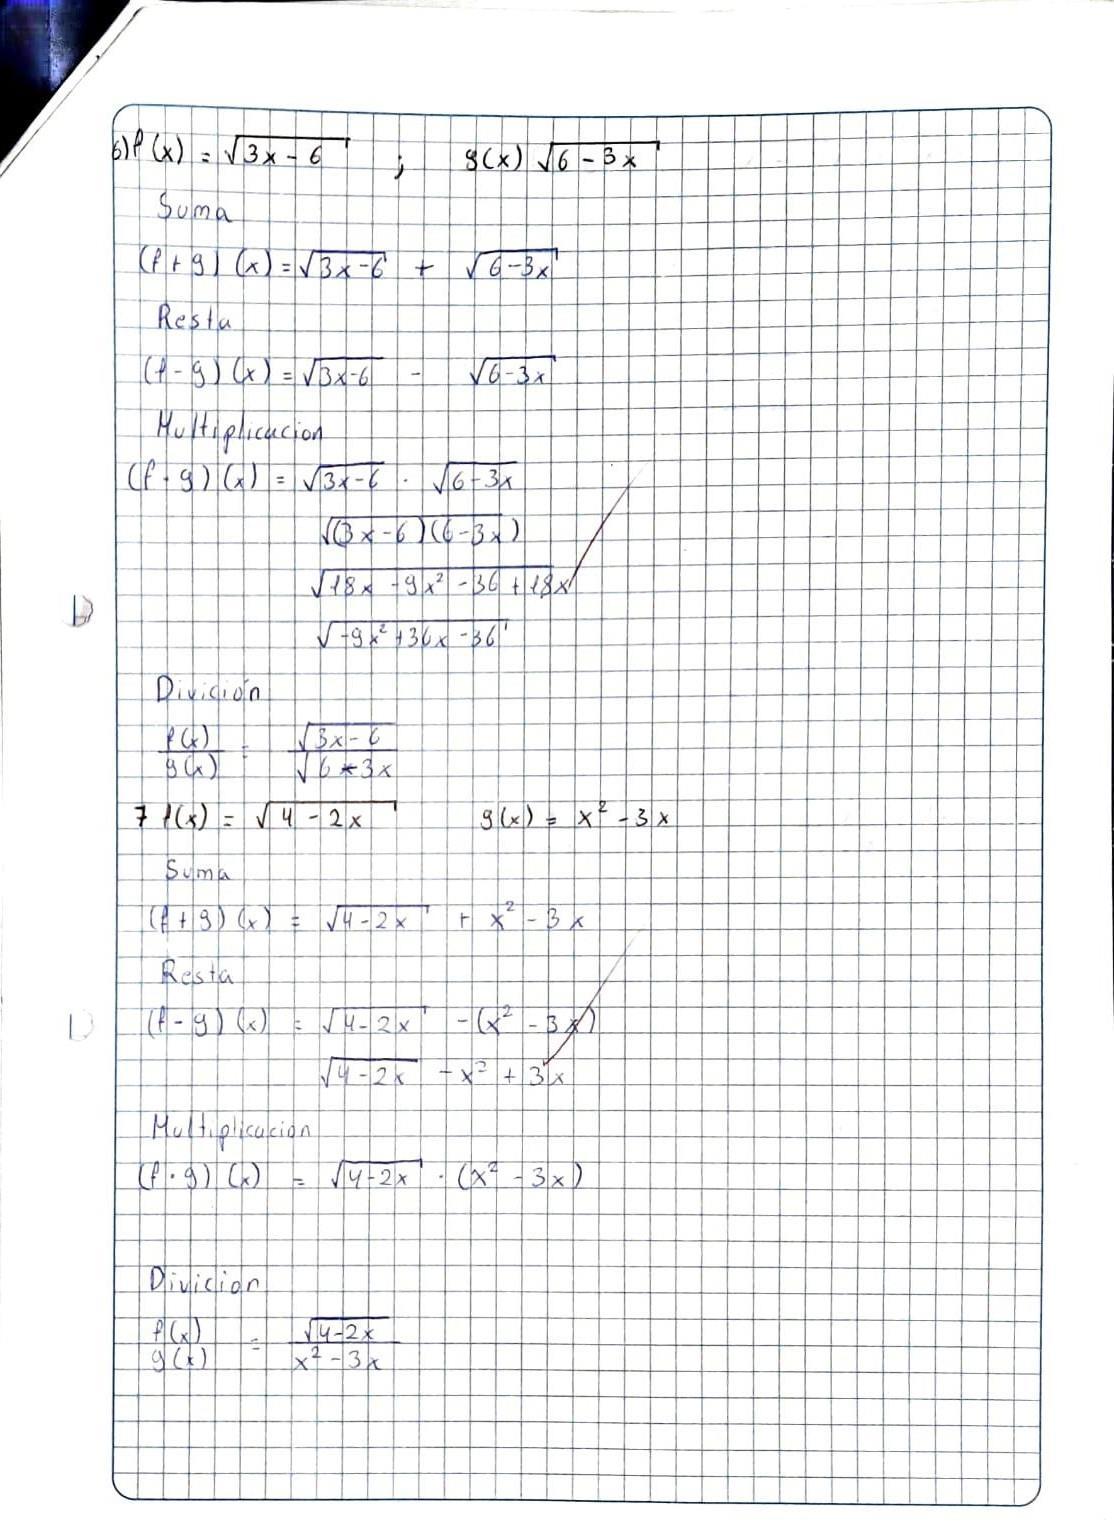 6) f(x) = √3x - 6 ; g(x) √6 - 3x
Suma
(f + g) (x) = √3x - 6 + √6 - 3x
Resta
(f - g) (x) = √3x - 6 - √6 - 3x
Multiplicacion
(f · g) (x) = √3x - 6 · √6 - 3x
√(3x - 6)(6 - 3x)
√18x - 9x² - 36 + 18x
√-9x² + 36x - 36
División
f(x)/g(x) = √3x - 6/√6 - 3x
7 f(x) = √4 - 2x g(x) = x² - 3x
Suma
(f + g) (x) = √4 - 2x + x² - 3x
Resta
(f - g) (x) = √4 - 2x - (x² - 3x)
√4 - 2x - x² + 3x
Multiplicación
(f · g) (x) = √4 - 2x · (x² - 3x)
Division
f(x)/g(x) = √4 - 2x/x² - 3x